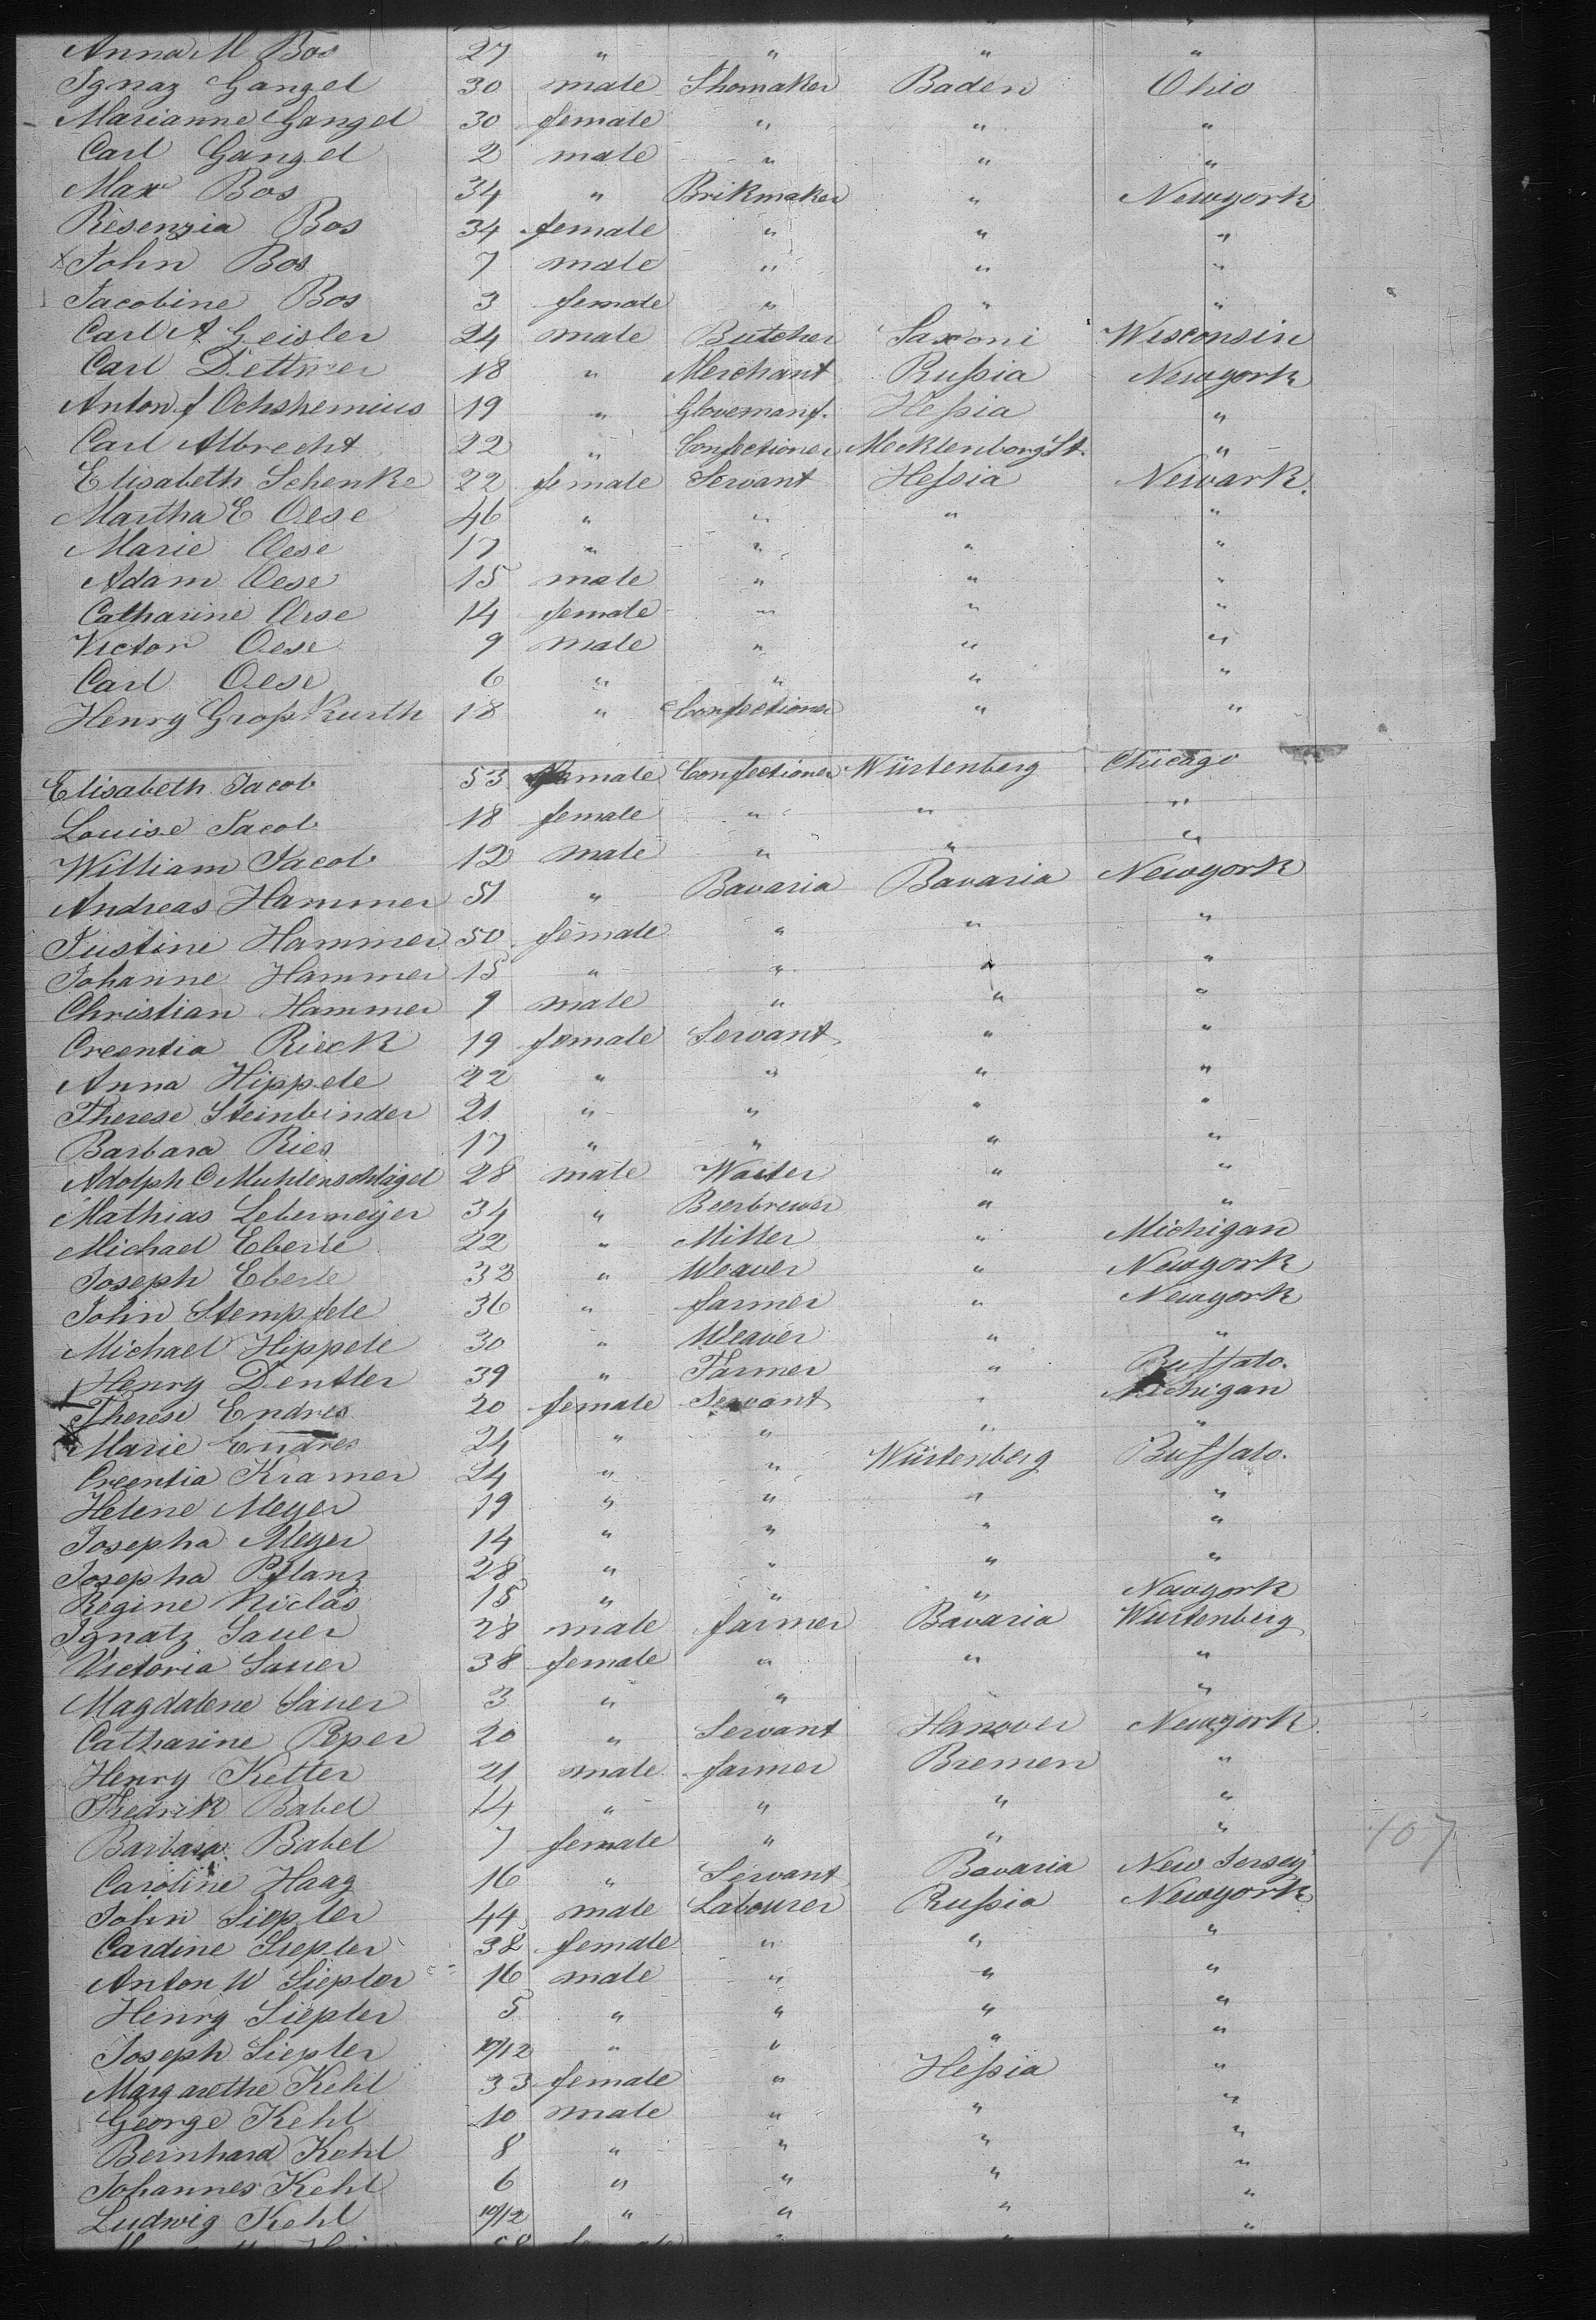 Anna M Bos 27 " " " "
Ignaz Gangel 30 male Shomaker Baden Ohio
Marianne Gangel 30 female " " "
Carl Gangel 2 male " " "
Max Bos 34 " Brikmaker " Newyork
Resenzia Bos 34 female " " "
John Bos 7 male " " "
Jacobine Bos 3 female " " "
Carl A Geisler 24 male Butcher Saxoni Wisconsin
Carl Dettmer 18 " Merchant Rußia Newyork
Anton f Ochshemius 19 " Glovemanf. Heßia "
Carl Albrecht 22 " Confectioner Mecklenborg St. "
Elisabeth Schenke 22 female Servant Heßia Newark.
Martha E Oese 46 " " " "
Marie Oese 17 " " " "
Adam Oese 15 male " " "
Catharine Oese 14 female " " "
Victor Oese 9 male " " "
Carl Oese 6 " " " "
Henry Großkurth 18 " Confectioner " "
Elisabeth Jacob 53 female Confectioner Würtenberg Chicago
Louise Jacob 18 female " " "
William Jacob 12 male " " "
Andreas Hammer 51 " Bavaria Bavaria Newyork
Justine Hammer 50 female " " "
Johanne Hammer 15 " " " "
Christian Hammer 9 male " " "
Creentia Rieck 19 female Servant " "
Anna Hippele 22 " " " "
Therese Steinbinder 21 " " " "
Barbara Ries 17 " " " "
Adolph C Muhlenschlägel 28 male Waiter " "
Mathias Lebermeyer 34 " Beerbrewer " "
Michael Eberle 22 " Miller " Michigan
Joseph Eberle 32 " Weaver " Newyork
John Stempfele 36 " farmer " Newyork
Michael Hippele 30 " Weaver " "
Henry Dentler 39 " Farmer " Buffalo.
Therese Endres 20 female Servant " Michigan
Marie Endres 24 " " " "
Creentia Kramer 24 " " Würtenberg Buffalo.
Helene Meyer 19 " " " "
Josepha Meyer 14 " " " "
Josepha Pflanz 28 " " " "
Regine Niclas 15 " " " Newyork
Ignatz Sauer 28 male farmer Bavaria Wurtenberg
Victoria Sauer 38 female " " "
Magdalene Sauer 3 " " "
Catharine Peper 20 " Servant Hanover Newyork.
Henry Ketter 21 male farmer Bremen "
Fredrik Babel 14 " " " "
Barbara Babel 7 female " " "
107
Caroline Haag 16 " Servant Bavaria New Jersey
John Siepler 44 male Labourer Rußia Newyork
Cardine Siepler 38 female " " "
Anton W Siepler 16 male " " "
Henry Siepler 5 " " " "
Joseph Siepler 10/12 " " " "
Margarethe Kehl 33 female " Heßia "
George Kehl 10 male " " "
Bernhard Kehl 8 " " " "
Johannes Kehl 6 " " " "
Ludwig Kehl 10/12 " " " "